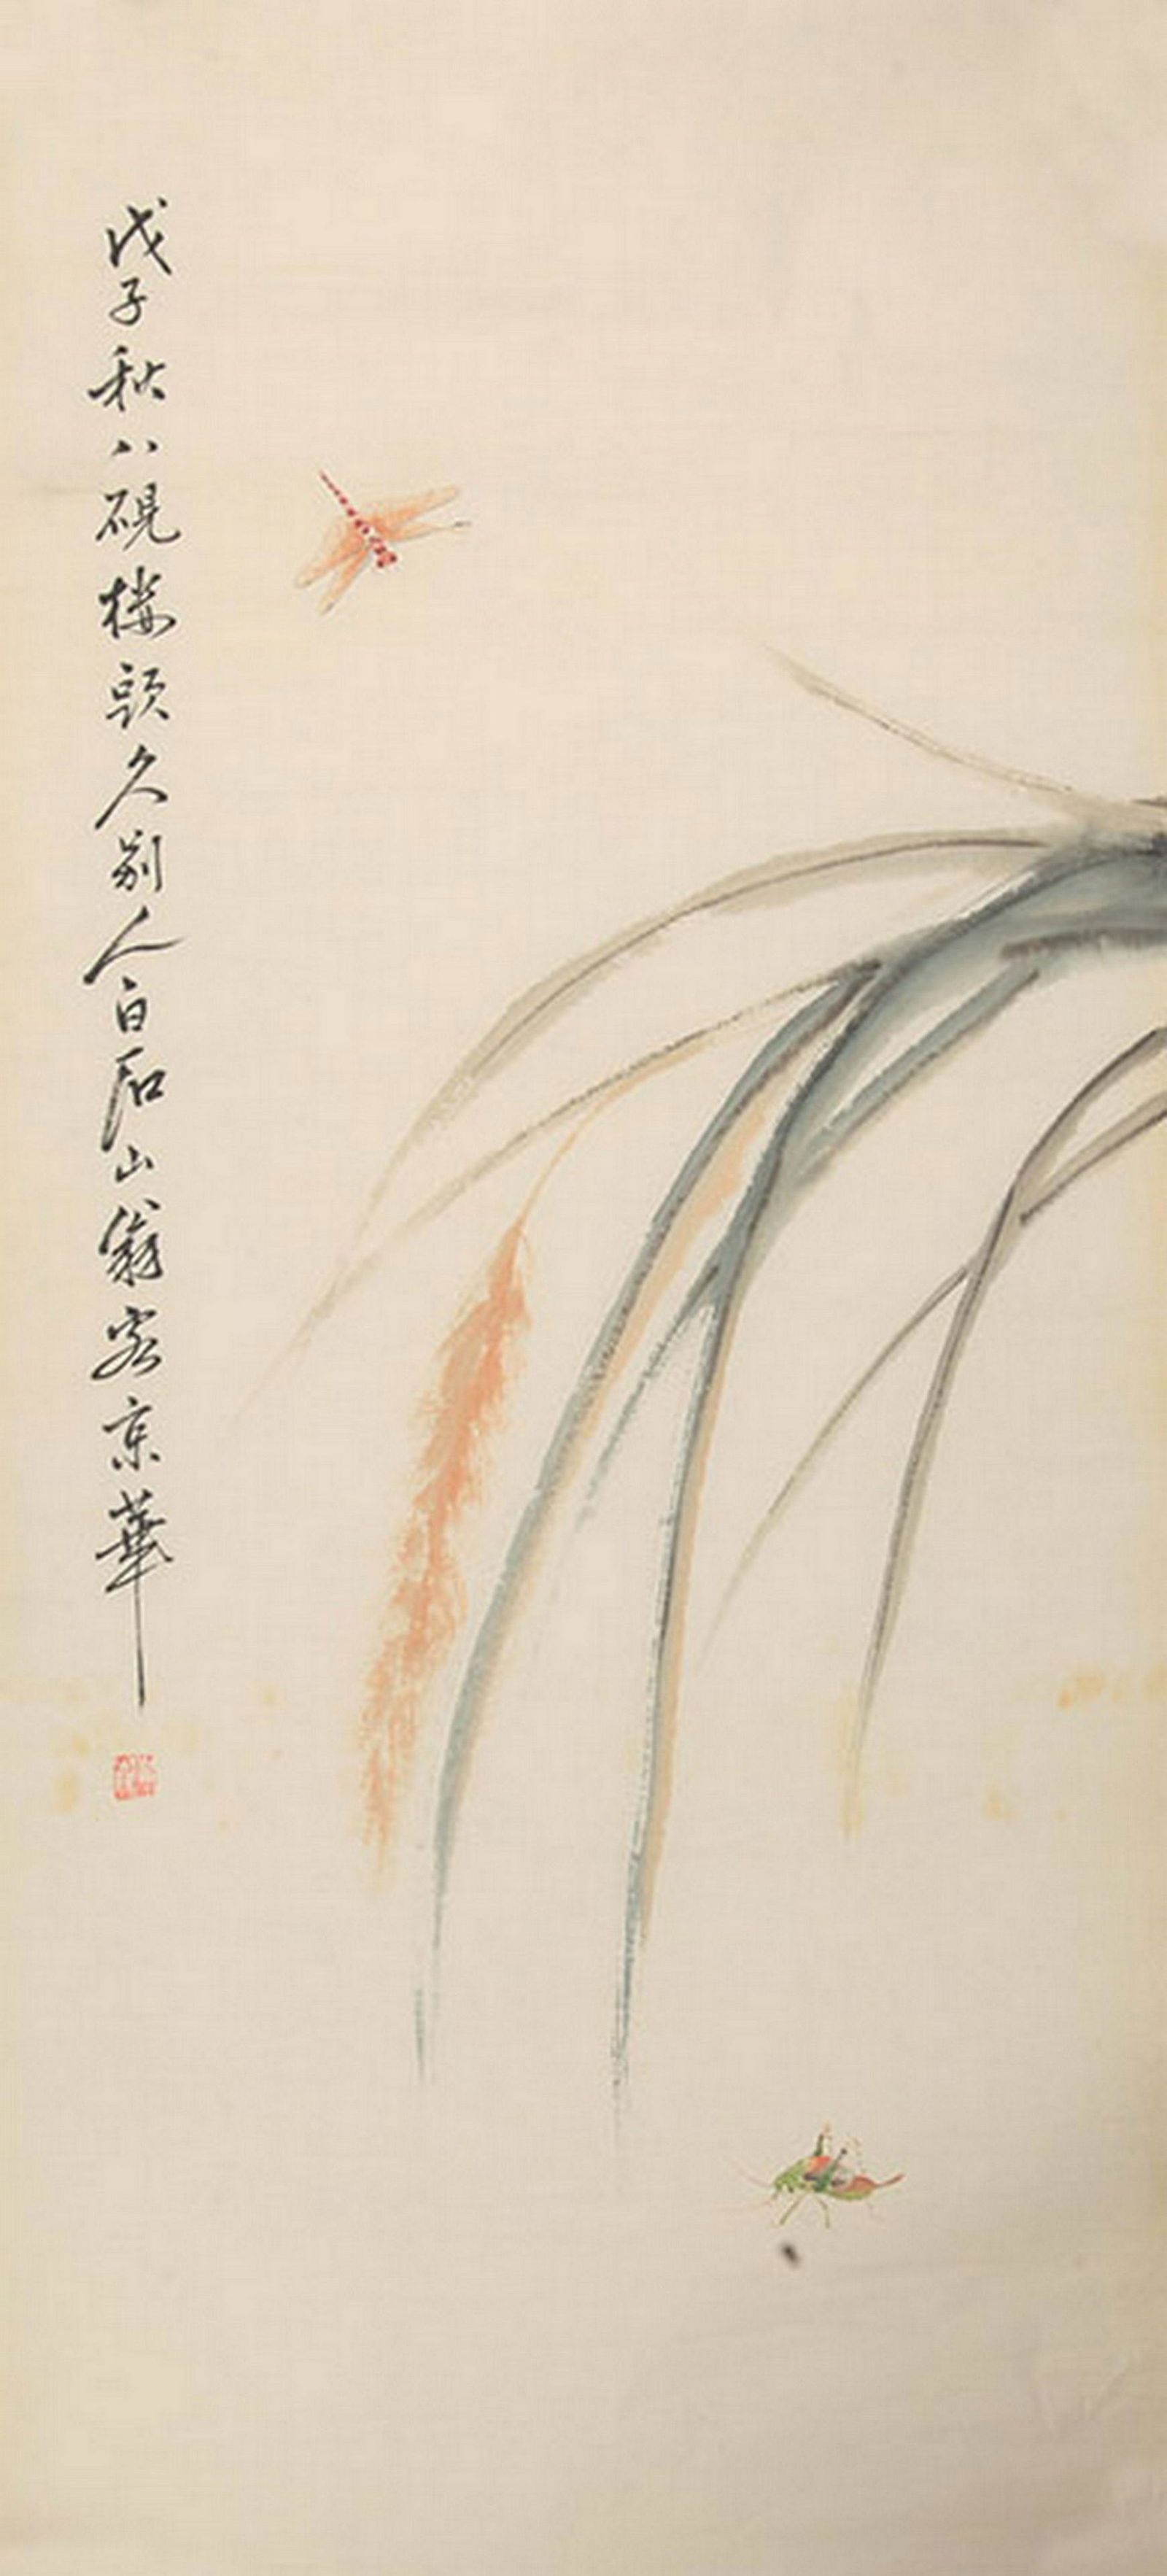 戊子秋八硯楼頭久别人白石山翁客京華